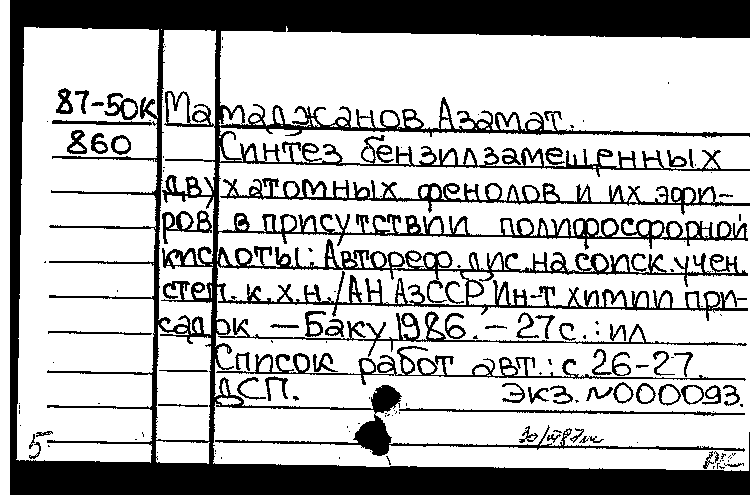 87-50к Мамаджанов, Азамат.
860 Синтез бензилзамещенных
двухатомных фенолов и их эфи-
ров в присутствии полифосфорной
кислоты: Автореф. дис. на соиск. учен.
степ. к.х.н. / АН АзССР, Ин-т химии при-
садок. — Баку, 1986. — 27 с. : ил
Список работ авт.: с. 26-27.
ДСП. Экз. №000093.
5